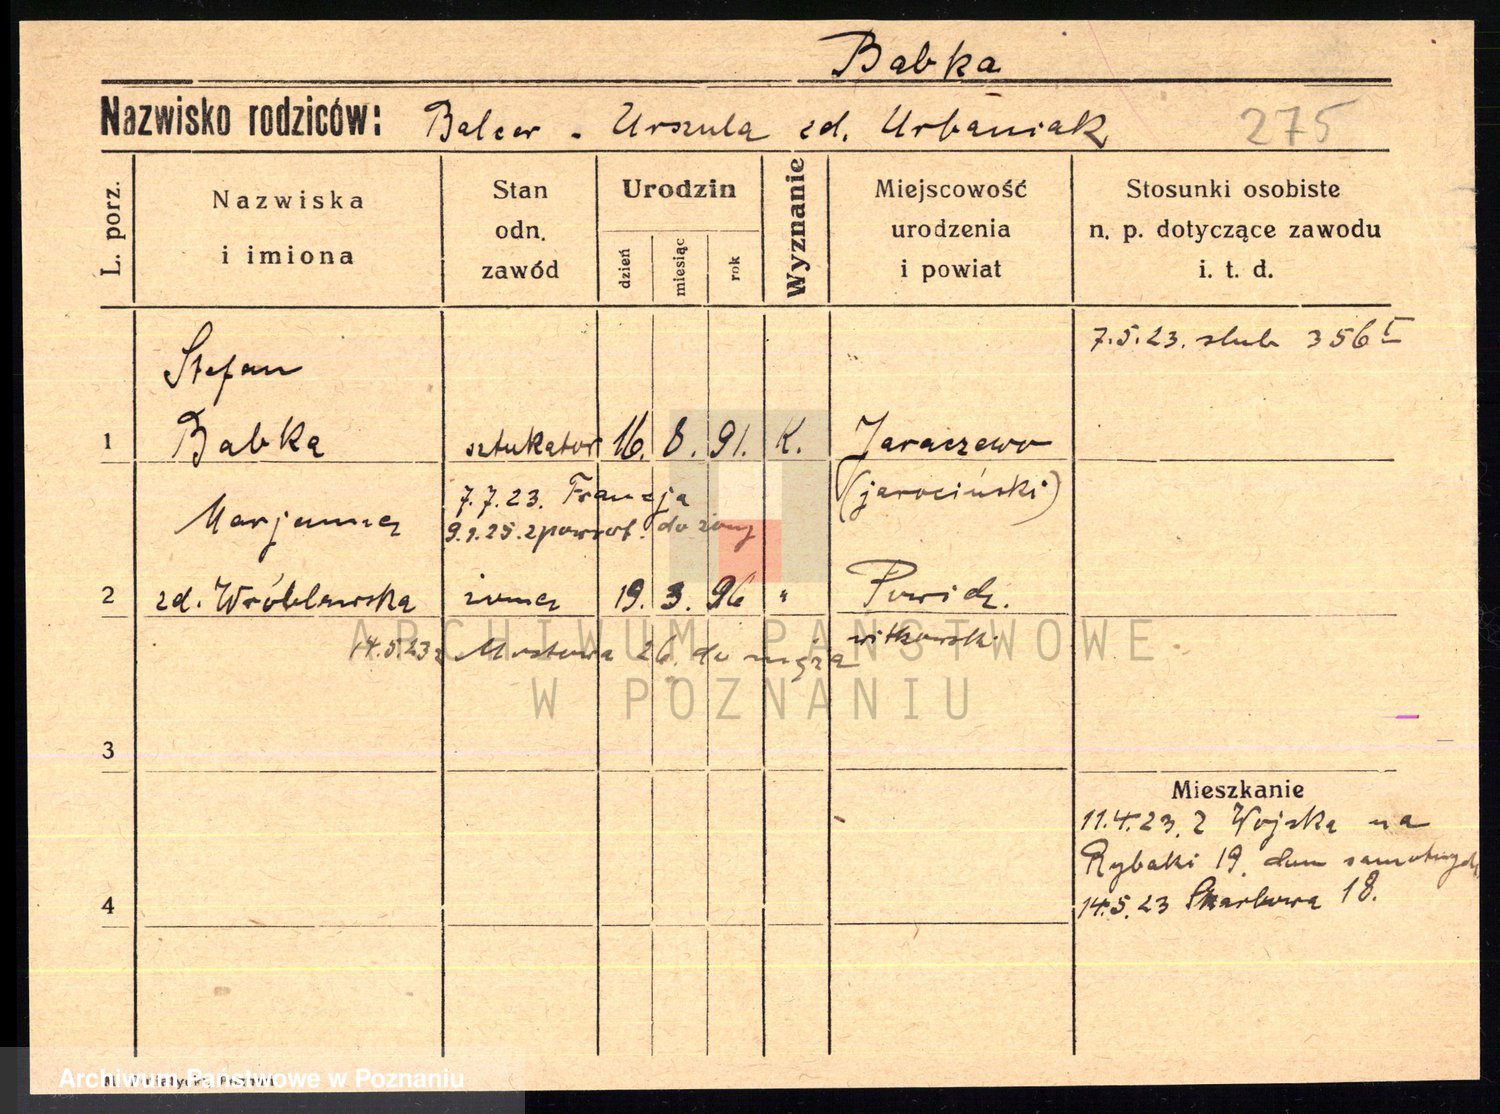 Babka
Nazwisko rodziców: Balcer - Urszula zd. Urbaniak 275
L. porz.
Nazwiska
i imiona
Stan
odn.
zawód
Urodzin
dzień
miesiąc
rok
Wyznanie
Miejscowość
urodzenia
i powiat
Stosunki osobiste
n. p. dotyczące zawodu
i. t. d.
7.5.23. slub 356 I
Stefan
1 Babka sztukator 16. 8. 91. K. Jaraczewo
7.7.23. Francja (jarociński)
Marjanna 9.1.25. zpowrot. do żony
2 zd. Wróblewska żona 19. 3. 96 " Powidz.
witkowski
14.5.23 z Mostowa 26. do męża
ARCHIWUM PAŃSTWOWE
W POZNANIU
3
Mieszkanie
11.4.23. z Wojska na
Rybaki 19. dom samotnych
4 14.5.23 Skarbowa 18.
Archiwum Państwowe w Poznaniu